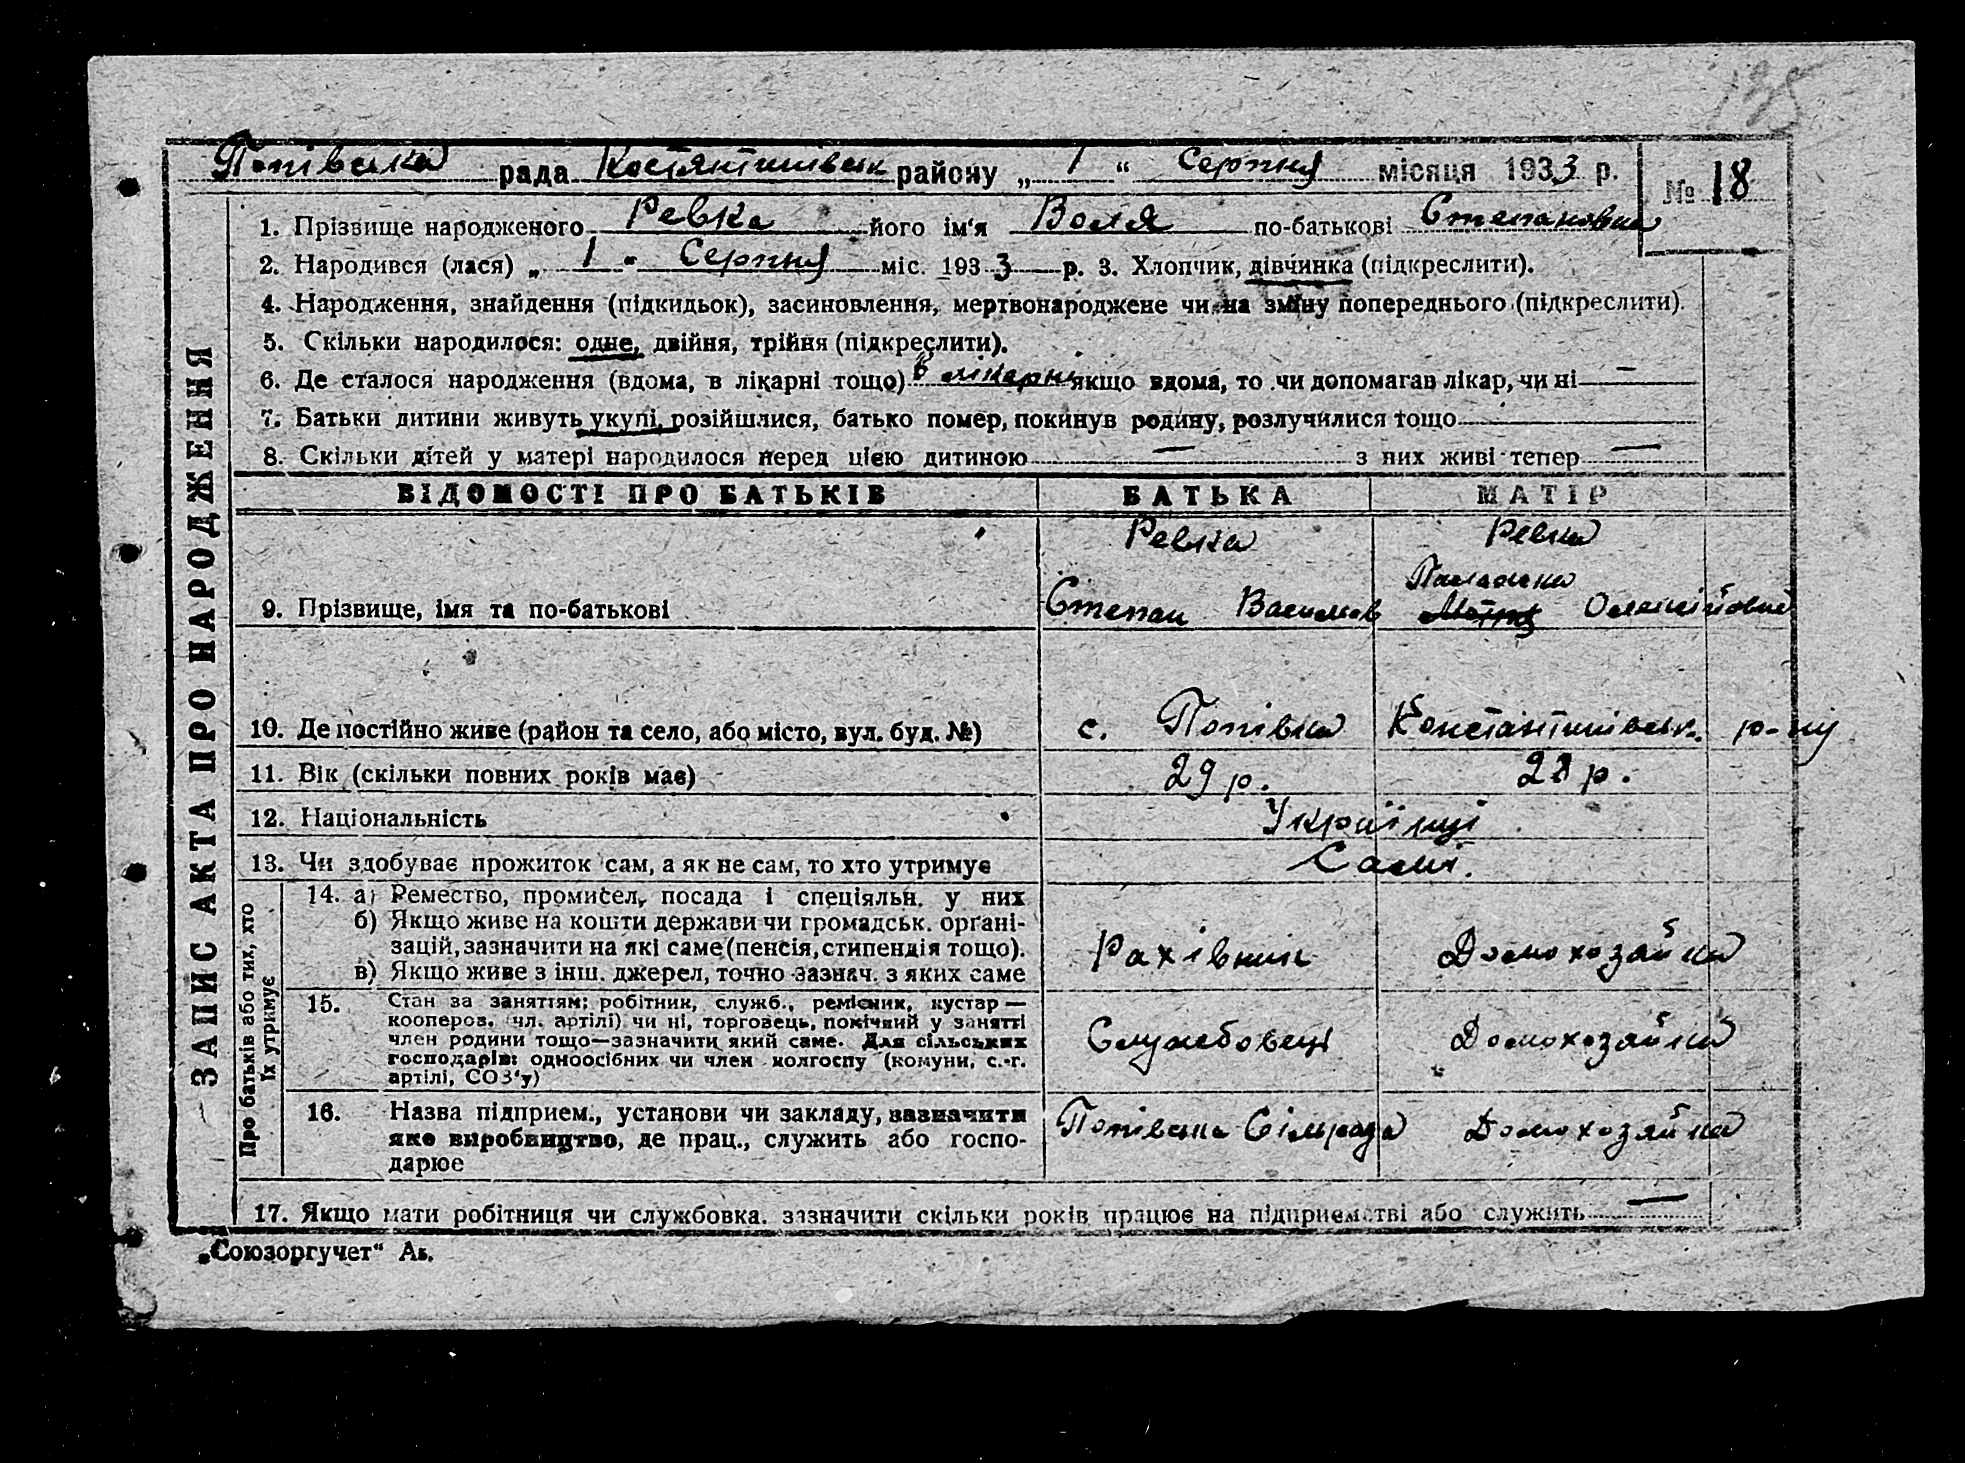 125
Попівська рада Костянтинівськ району „ 1 “ Серпня місяця 1933 р. № 18
1. Прізвище народженого Ревка його ім'я Воля по-батькові Степановна
2. Народився (лася) „ 1 “ Серпня міс. 1933 р. 3. Хлопчик, дівчинка (підкреслити).
4. Народження, знайдення (підкидьок), засиновлення, мертвонароджене чи на зміну попереднього (підкреслити).
5. Скільки народилося: одне, двійня, трійня (підкреслити).
6. Де сталося народження (вдома, в лікарні тощо) в лікарні якщо вдома, то чи допомагав лікар, чи ні —
7. Батьки дитини живуть укупі, розійшлися, батько помер, покинув родину, розлучилися тощо
8. Скільки дітей у матері народилося перед цією дитиною — з них живі тепер —
ЗАПИС АКТА ПРО НАРОДЖЕННЯ
ВІДОМОСТІ ПРО БАТЬКІВ БАТЬКА МАТІР
Ревка Ревка
9. Прізвище, імя та по-батькові Степан Васильов Олексіївна
10. Де постійно живе (район та село, або місто, вул. буд. №) с. Попівка Константинівськ. р-ну
11. Вік (скільки повних років має) 29 р. 28 р.
12. Національність Українці
13. Чи здобуває прожиток сам, а як не сам, то хто утримує Самі.
Про батьків або тих, хто
їх утримує
14. а) Ремество, промисел, посада і спеціяльн. у них
б) Якщо живе на кошти держави чи громадськ. органі-
зацій, зазначити на які саме (пенсія, стипендія тощо).
в) Якщо живе з інш. джерел, точно зазнач. з яких саме
Рахівник Домохозайка
15. Стан за заняттям: робітник, служб., ремісник, кустар —
кооперов. (чл. артілі) чи ні, торговець, помічний у занятті
член родини тощо—зазначити який саме. Для сільських
господарів: одноосібних чи член колгоспу (комуни, с.-г.
артілі, СОЗ'у)
Службовець Домохозяйка
16. Назва підприєм., установи чи закладу, зазначити
яке виробництво, де прац., служить або госпо-
дарює
Попівська Сільрада Домохозяйка
17. Якщо мати робітниця чи службовка, зазначити скільки років працює на підприємстві або служить —
„Союзоргучет“ Ак.